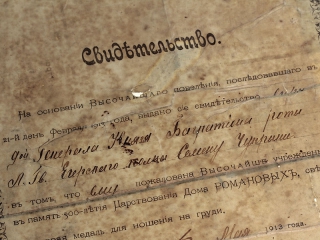 Свидѣтельство.
На основаніи ВЫСОЧАЙШАГО повелѣнія, послѣдовавшаго въ
21-й день Февраля года, выдано сіе свидѣтельство
Генерала Князя Багратіона роты
Л. Гв. Егерскаго полка Семену
въ томъ, что ему пожалована ВЫСОЧАЙШЕ учрежденная
въ память 300-лѣтія Царствованія Дома РОМАНОВЫХЪ,
медаль для ношенія на груди.
Мая 1913 года.